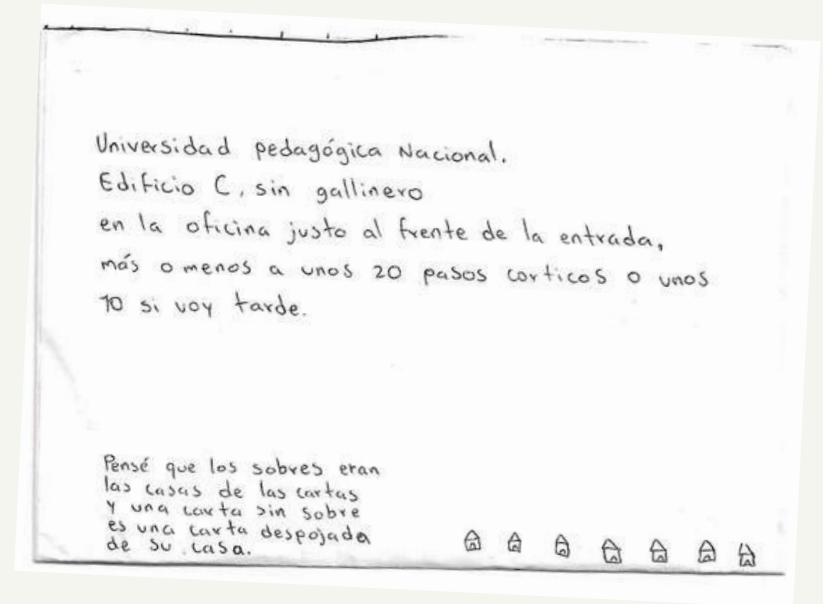 Universidad pedagógica Nacional.
Edificio C, sin gallinero
en la oficina justo al frente de la entrada,
más o menos a unos 20 pasos corticos o unos
10 si voy tarde.
Pensé que los sobres eran
las casas de las cartas
y una carta sin sobre
es una carta despojada
de su casa.